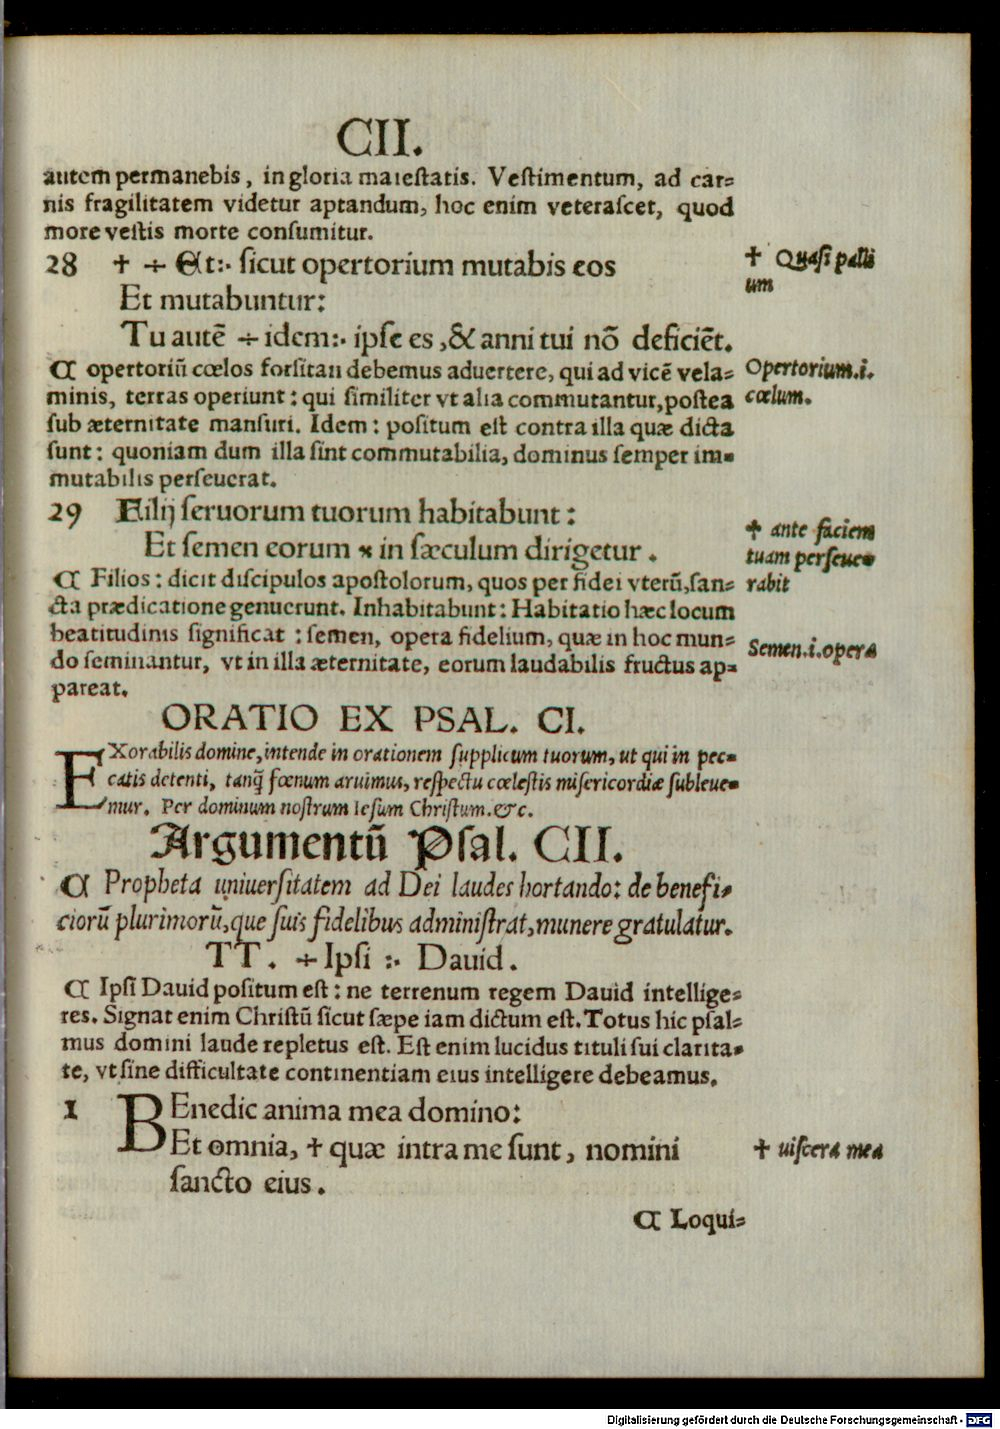 CII.
autem permanebis, in gloria maiestatis. Vestimentum, ad car=
nis fragilitatem videtur aptandum, hoc enim veterascet, quod
more vestis morte consumitur.
28 ✝ ÷ Et:· sicut opertorium mutabis eos
✝ Quasi palli
um
Et mutabuntur:
Tu autē ÷ idem:· ipse es, & anni tui nō deficiēt.
¶ opertoriū cœlos forsitan debemus aduertere, qui ad vicē vela=
Opertorium.i.
minis, terras operiunt: qui similiter vt alia commutantur, postea
cœlum.
sub æternitate mansuri. Idem: positum est contra illa quæ dicta
sunt: quoniam dum illa sint commutabilia, dominus semper im=
mutabilis perseuerat.
29 Filij seruorum tuorum habitabunt:
✝ ante faciem
tuam perseue=
rabit
Et semen eorum ⁊ in sæculum dirigetur.
¶ Filios: dicit discipulos apostolorum, quos per fidei vterū, san=
cta prædicatione genuerunt. Inhabitabunt: Habitatio hæc locum
beatitudinis significat: semen, opera fidelium, quæ in hoc mun=
Semen.i.opera
do seminantur, vt in illa æternitate, eorum laudabilis fructus ap=
pareat.
ORATIO EX PSAL. CI.
EXorabilis domine, intende in orationem supplicum tuorum, ut qui in pec=
catis detenti, tanq̄ fœnum aruimus, respectu cœlestis misericordiæ subleue=
mur. Per dominum nostrum Iesum Christum.&c.
Argumentū Psal. CII.
¶ Propheta uniuersitatem ad Dei laudes hortando: de benefi=
ciorū plurimorū, que suis fidelibus administrat, munere gratulatur.
TT. ÷ Ipsi :· Dauid.
¶ Ipsi Dauid positum est: ne terrenum regem Dauid intellige=
res. Signat enim Christū sicut sæpe iam dictum est. Totus hic psal=
mus domini laude repletus est. Est enim lucidus tituli sui clarita=
te, vt sine difficultate continentiam eius intelligere debeamus.
1 BEnedic anima mea domino:
Et omnia, ✝ quæ intra me sunt, nomini
✝ uiscera mea
sancto eius.
¶ Loqui=
Digitalisierung gefördert durch die Deutsche Forschungsgemeinschaft - DFG